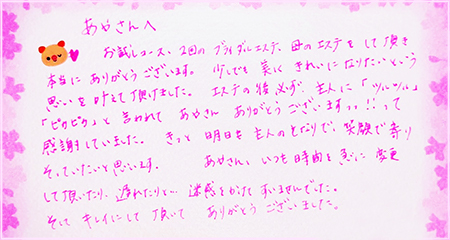 あやさんへ
お試しコース、2回の ブライダルエステ、母のエステをして頂き
本当に ありがとうございます。 少しでも 美しく きれいに なりたいという
思いを 叶えて 頂けました。 エステの後 必ず、主人に 「ツルツル」
「ピカピカ」と 言われて あやさん ありがとうございますっっ!! って
感謝していました。 きっと 明日も 主人の となりで、笑顔で 寄り
そっていたいと 思います。 あやさん、いつも 時間を 急に 変更
して 頂いたり、遅れたりと… 迷惑を かけて すいませんでした。
そして キレイに して 頂いて ありがとう ございました。